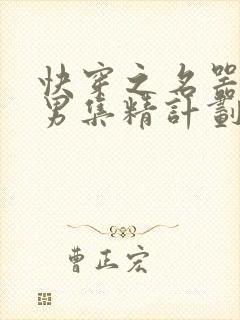 快穿之名器
男集精計劃
曹正宏